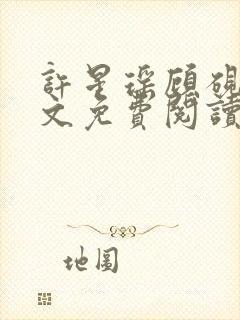 許星琛顧硯
文免費閱讀
地圖